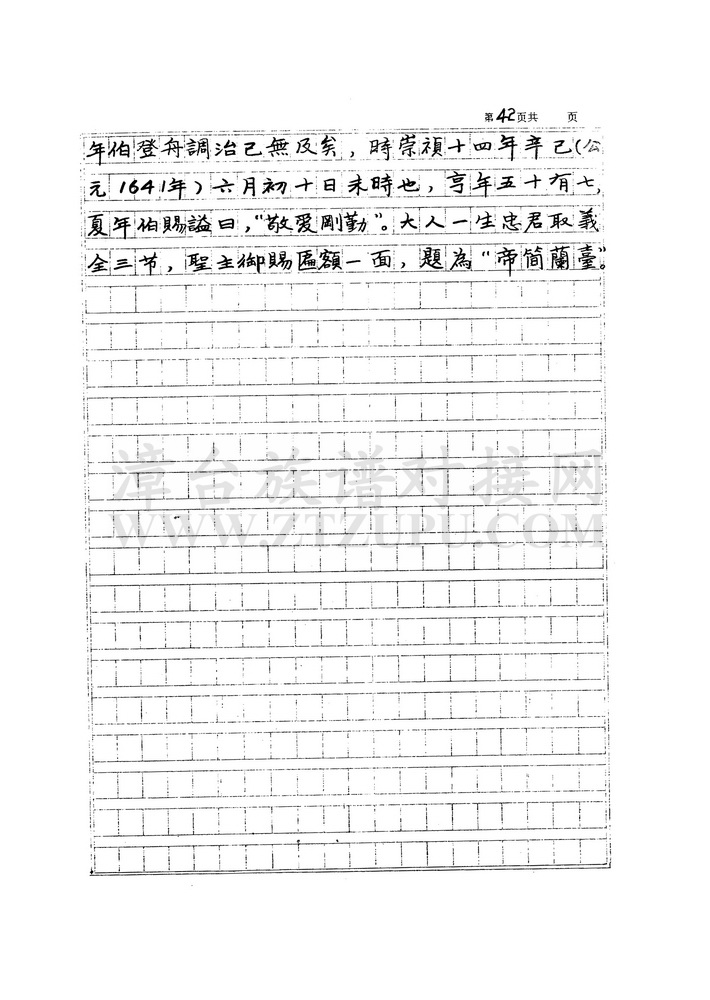 第42页共 页
年伯登舟調治己無及矣，時崇禎十四年辛己（公
元1641年）六月初十日未時也，亨年五十有七，
夏年伯賜謚曰，“敬愛剛勤”。大人一生忠君取義
全三节，聖主御賜匾額一面，題為“帝簡蘭臺”。
漳台族谱对接网
WWW.ZTZUPU.COM